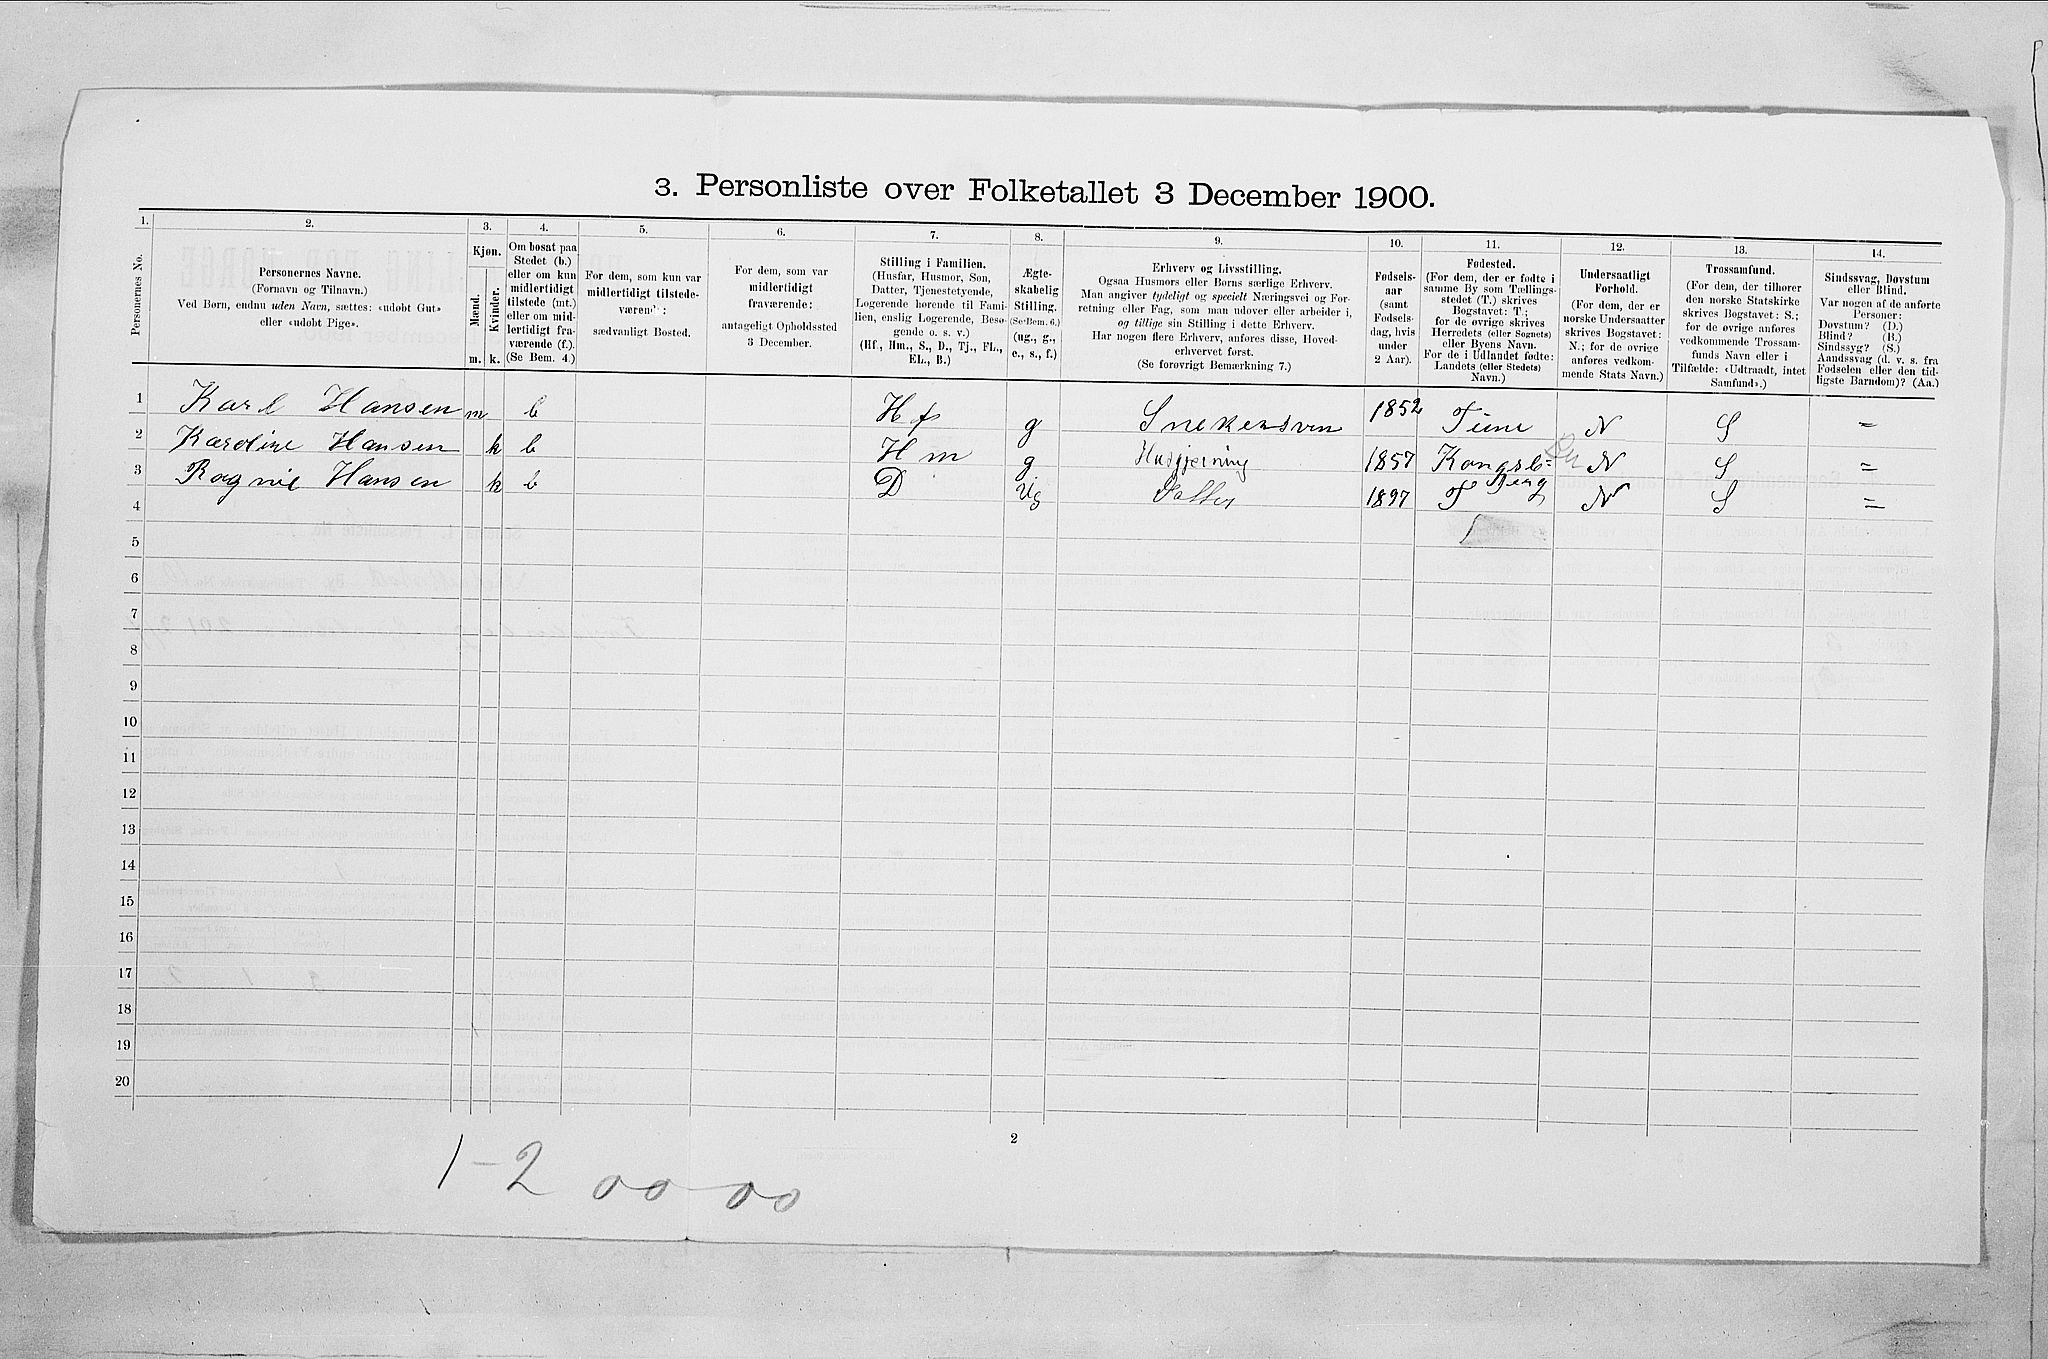 3. Personliste over Folketallet 3 December 1900.
1. 2. 3. 4. 5. 6. 7. 8. 9. 10. 11. 12. 13. 14.
Personernes No.
Personernes Navne.
(Fornavn og Tilnavn.)
Ved Børn, endnu uden Navn, sættes: «udøbt Gut»
eller «udøbt Pige».
Kjøn.
Mænd.
Kvinder.
m. k.
Om bosat paa
Stedet (b.)
eller om kun
midlertidigt
tilstede (mt.)
eller om mid-
lertidigt fra-
værende (f.).
(Se Bem. 4.)
For dem, som kun var
midlertidigt tilstede-
værende:
sædvanligt Bosted.
For dem, som var
midlertidigt
fraværende:
antageligt Opholdssted
3 December.
Stilling i Familien.
(Husfar, Husmor, Søn,
Datter, Tjenestetyende,
Logerende hørende til Fami-
lien, enslig Logerende, Besø-
gende o. s. v.)
(Hf., Hm., S., D., Tj., FL.,
EL., B.)
Ægte-
skabelig
Stilling.
(Se Bem. 6.)
(ug., g.,
e., s., f.)
Erhverv og Livsstilling.
Ogsaa Husmors eller Børns særlige Erhverv.
Man angiver tydeligt og specielt Næringsvei og For-
retning eller Fag, som man udøver eller arbeider i,
og tillige sin Stilling i dette Erhverv.
Har nogen flere Erhverv, anføres disse, Hoved-
erhvervet først.
(Se forøvrigt Bemærkning 7.)
Fødsels-
aar
(samt
Fødsels-
dag, hvis
under
2 Aar).
Fødested.
(For dem, der er fødte i
samme By som Tællings-
stedet (T.) skrives
Bogstavet: T.;
for de øvrige skrives
Herredets (eller Sognets)
eller Byens Navn.
For de i Udlandet fødte:
Landets (eller Stedets)
Navn.)
Undersaatligt
Forhold.
(For dem, der er
norske Undersaatter
skrives Bogstavet:
N.; for de øvrige
anføres vedkom-
mende Stats Navn.)
Trossamfund.
(For dem, der tilhører
den norske Statskirke
skrives Bogstavet: S.;
for de øvrige anføres
vedkommende Trossam-
funds Navn eller i
Tilfælde: «Udtraadt, intet
Samfund».)
Sindssvag, Døvstum
eller Blind.
Var nogen af de anførte
Personer:
Døvstum? (D.)
Blind? (B.)
Sindssyg? (S.)
Aandssvag (d. v. s. fra
Fødselen eller den tid-
ligste Barndom)? (Aa.)
1 Karl Hansen m b Hf g Snekersven 1852 Tune N S =
2 Karoline Hansen k b Hm g Husgjerning 1857 Kongsb= N S =
berg
3 Ragnil Hansen k b D Ug Datter 1897 T N S =
4
5
6
7
8
9
10
11
12
13
14
15
16
17
18
19
20
2
1-2 00 00